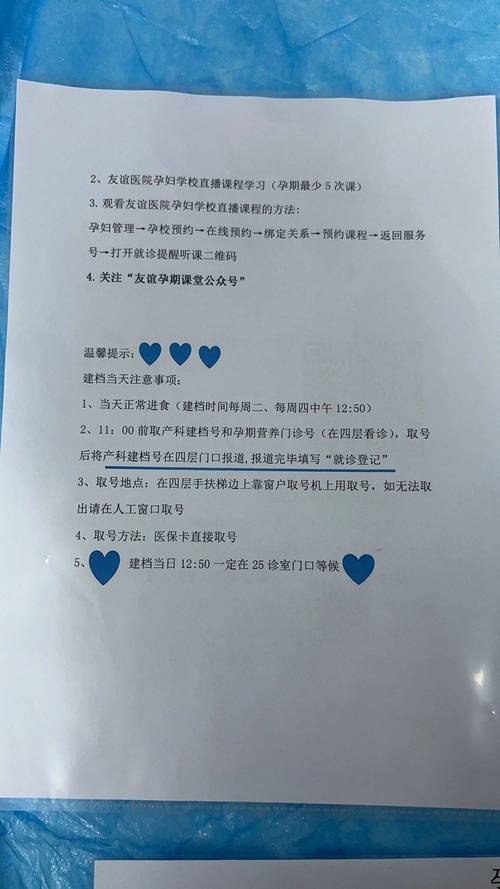 2、友谊医院孕妇学校直播课程学习（孕期最少 5 次课）
3. 观看友谊医院孕妇学校直播课程的方法:
孕妇管理→孕校预约→在线预约→绑定关系→预约课程→返回服务
号→打开就诊提醒听课二维码
4. 关注“友谊孕期课堂公众号”
温馨提示:
建档当天注意事项:
1、当天正常进食（建档时间每周二、每周四中午 12:50）
2、11: 00 前取产科建档号和孕期营养门诊号（在四层看诊），取号
后将产科建档号在四层门口报道,报道完毕填写“就诊登记”
3、取号地点: 在四层手扶梯边上靠窗户取号机上用取号，如无法取
出请在人工窗口取号
4、取号方法: 医保卡直接取号
5、 建档当日 12:50 一定在 25 诊室门口等候